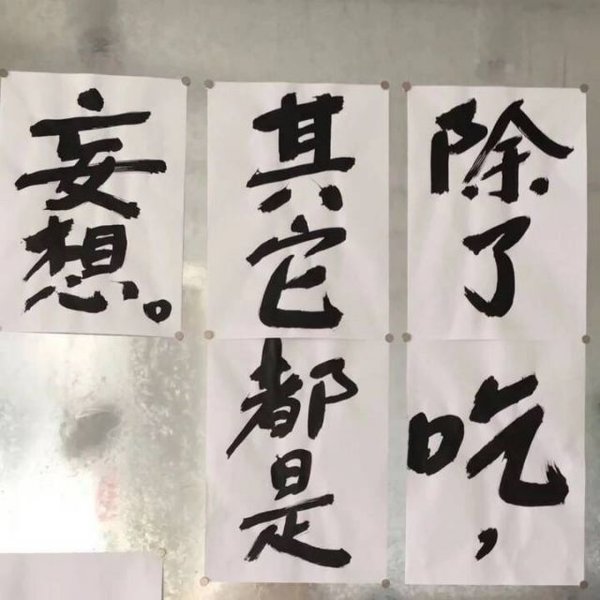 除了吃，
其它都是
妄想。